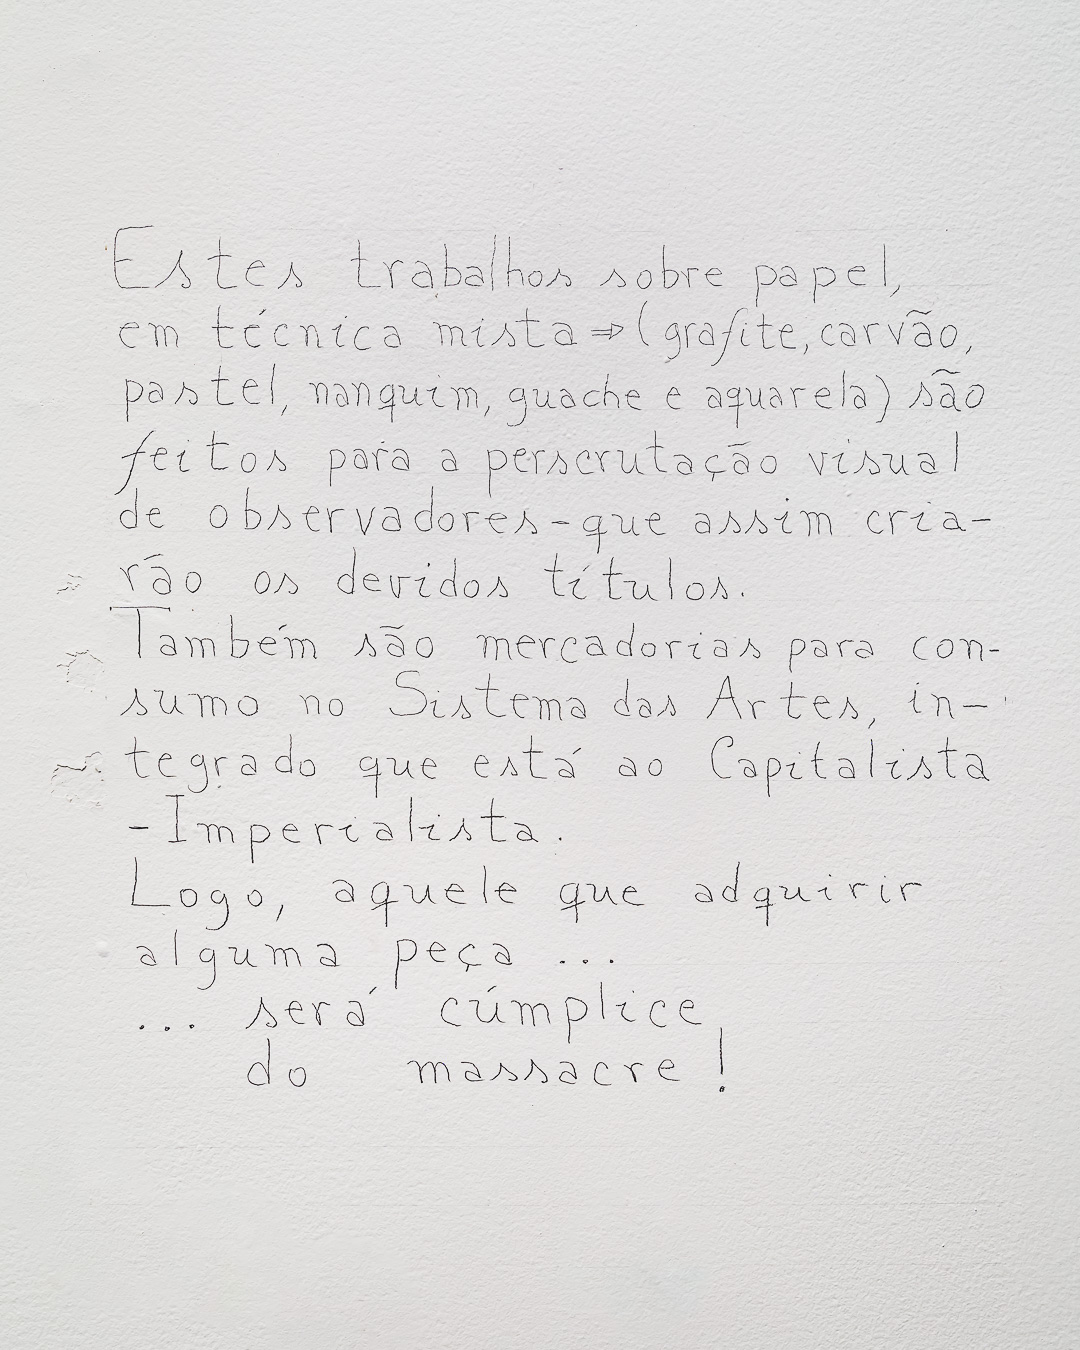 Estes trabalhos sobre papel,
em técnica mista ⇒ (grafite, carvão,
pastel, nanquim, guache e aquarela) são
feitos para a perscrutação visual
de observadores - que assim cria-
rão os devidos títulos.
Também são mercadorias para con-
sumo no Sistema das Artes, in-
tegrado que está ao Capitalista
- Imperialista.
Logo, aquele que adquirir
alguma peça ...
... será cúmplice
do massacre!